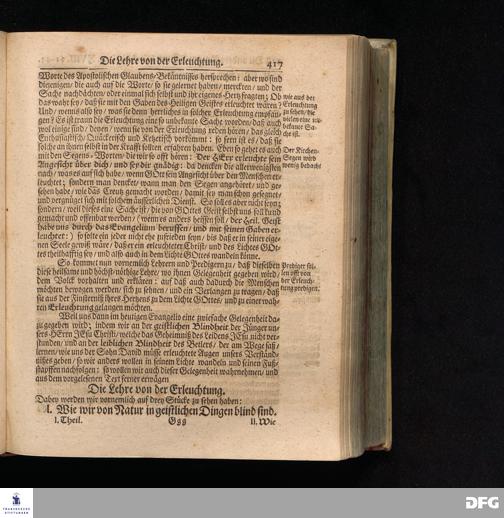 Die Lehre von der Erleuchtung. 417
Worte des Apostolischen Glaubens/Bekäntnisses hersprechen: aber wo sind
diejenigen/ die auch auf die Worte/ so sie gelernet haben/ mercken/ und der
Sache nachdächten/ oder einmal sich selbst und ihr eigenes Hertz fragten; Ob
das wahr sey/ daß sie mit den Gaben des Heiligen Geistes erleuchtet wären?
Und/ wenns also sey/ was sie denn herrliches in solcher Erleuchtung empfan-
gen? Es ist traun die Erleuchtung eine so unbekante Sache worden/ daß auch
wol einige sind/ denen/ wenn sie von der Erleuchtung reden hören/ das gleich
Enthusiastisch/ Quäckerisch und Ketzerisch vorkömmt: so fern ist es/ daß sie
solche an ihnen selbst in der Krafft solten erfahren haben. Eben so gehet es auch
mit den Segens-Worten/ die wir so offt hören: Der HErr erleuchte sein
Angesicht über dich/ und sey dir gnädig: da dencken die allerwenigsten
nach/ was es auf sich habe/ wenn GOtt sein Angesicht über den Menschen er-
leuchtet; sondern man dencket/ wann man den Segen angehöret/ und ge-
sehen habe/ wie das Creutz gemacht worden/ damit sey man schon gesegnet
und vergnüget sich mit solchem äusserlichen Dienst. So soll es aber nicht seyn;
sondern/ weil dieses eine Sache ist/ die von GOttes Geist selbst uns soll kund
gemacht und offenbar werden/ (wenn es anders heissen soll/ der Heil. Geist
habe uns durch das Evangelium beruffen/ und mit seinen Gaben er-
leuchtet:) so solte ein jeder nicht ehe zufrieden seyn/ bis daß er in seiner eige-
nen Seele gewiß wäre/ daß er ein erleuchteter Christ/ und des Lichtes GOt-
tes theilhafftig sey/ und also auch in dem Lichte GOttes wandeln könne.
So kommet nun vornemlich Lehrern und Predigern zu/ daß dieselben
diese heilsame und höchst-nöthige Lehre/ wo ihnen Gelegenheit gegeben wird/
dem Volck vorhalten und erklären: auf daß auch dadurch die Menschen
möchten bewogen werden/ sich zu sehnen/ und ein Verlangen zu tragen/ daß
sie aus der Finsterniß ihres Hertzens zu dem Lichte GOttes/ und zu einer wah-
ren Erleuchtung gelangen möchten.
Weil uns dann im heutigen Evangelio eine zwiefache Gelegenheit da-
zu gegeben wird; indem wir an der geistlichen Blindheit der Jünger un-
sers HErrn JEsu Christi/ welche das Geheimniß des Leidens JEsu nicht ver-
stunden/ und an der leiblichen Blindheit des Betlers/ der am Wege saß/
lernen/ wie uns der Sohn David müsse erleuchtete Augen unsers Verständ-
nisses geben/ so wir anders wollen in seinem Lichte wandeln und seinen Fuß-
stapffen nachfolgen: so wollen wir auch dieser Gelegenheit wahrnehmen/ und
aus dem vorgelesenen Text ferner erwägen
Die Lehre von der Erleuchtung.
Dabey werden wir vornemlich auf drey Stücke zu sehen haben:
I. Wie wir von Natur in geistlichen Dingen blind sind.
I. Theil. Ggg II. Wie
wie aus der
Erleuchtung
zu sehen/ die
vielen eine un-
bekante Sa-
che ist.
Der Kirchen-
Segen wird
wenig bedacht
Prediger sol-
len offt von
der Erleuch-
tung predigen.
FRANCKESCHE
STIFTUNGEN
DFG